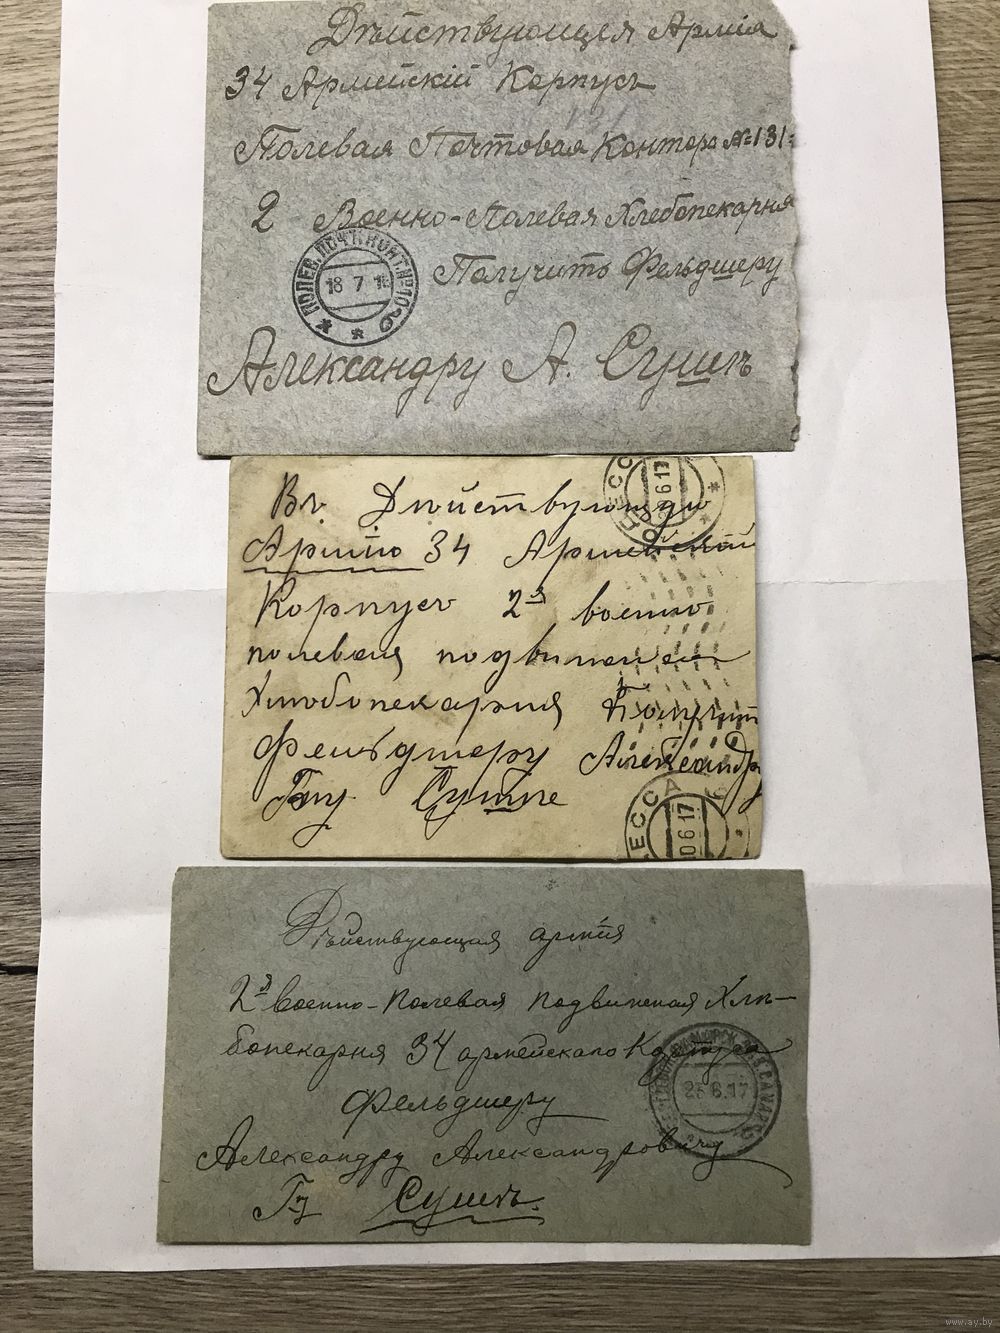 Дѣйствующая Армія
34 Армейскій Корпусъ
Полевая Почтовая Контора №131
2 Военно-Полевая Хлебопекарня
Получить Фельдшеру
Александру А. Сушъ
ПОЛЕВ. ПОЧТ. КОНТ. №
18 7 1
Въ Дѣйствующую
Армію 34 Армейскій
Корпусъ 2я военно
полевая подвижная
Хлѣбопекарня
Фельдшеру Александру
Гну Сушѣ
ОДЕССА
6 17
ДЕССА
0 6 17
Дѣйствующая армія
2я Военно-Полевая подвижная Хлѣ-
бопекарня 34 армейскаго Корпуса
Фельдшеру
Александру Александровичу
Гну Сушъ.
6.17
САМАРСК
www.ay.by